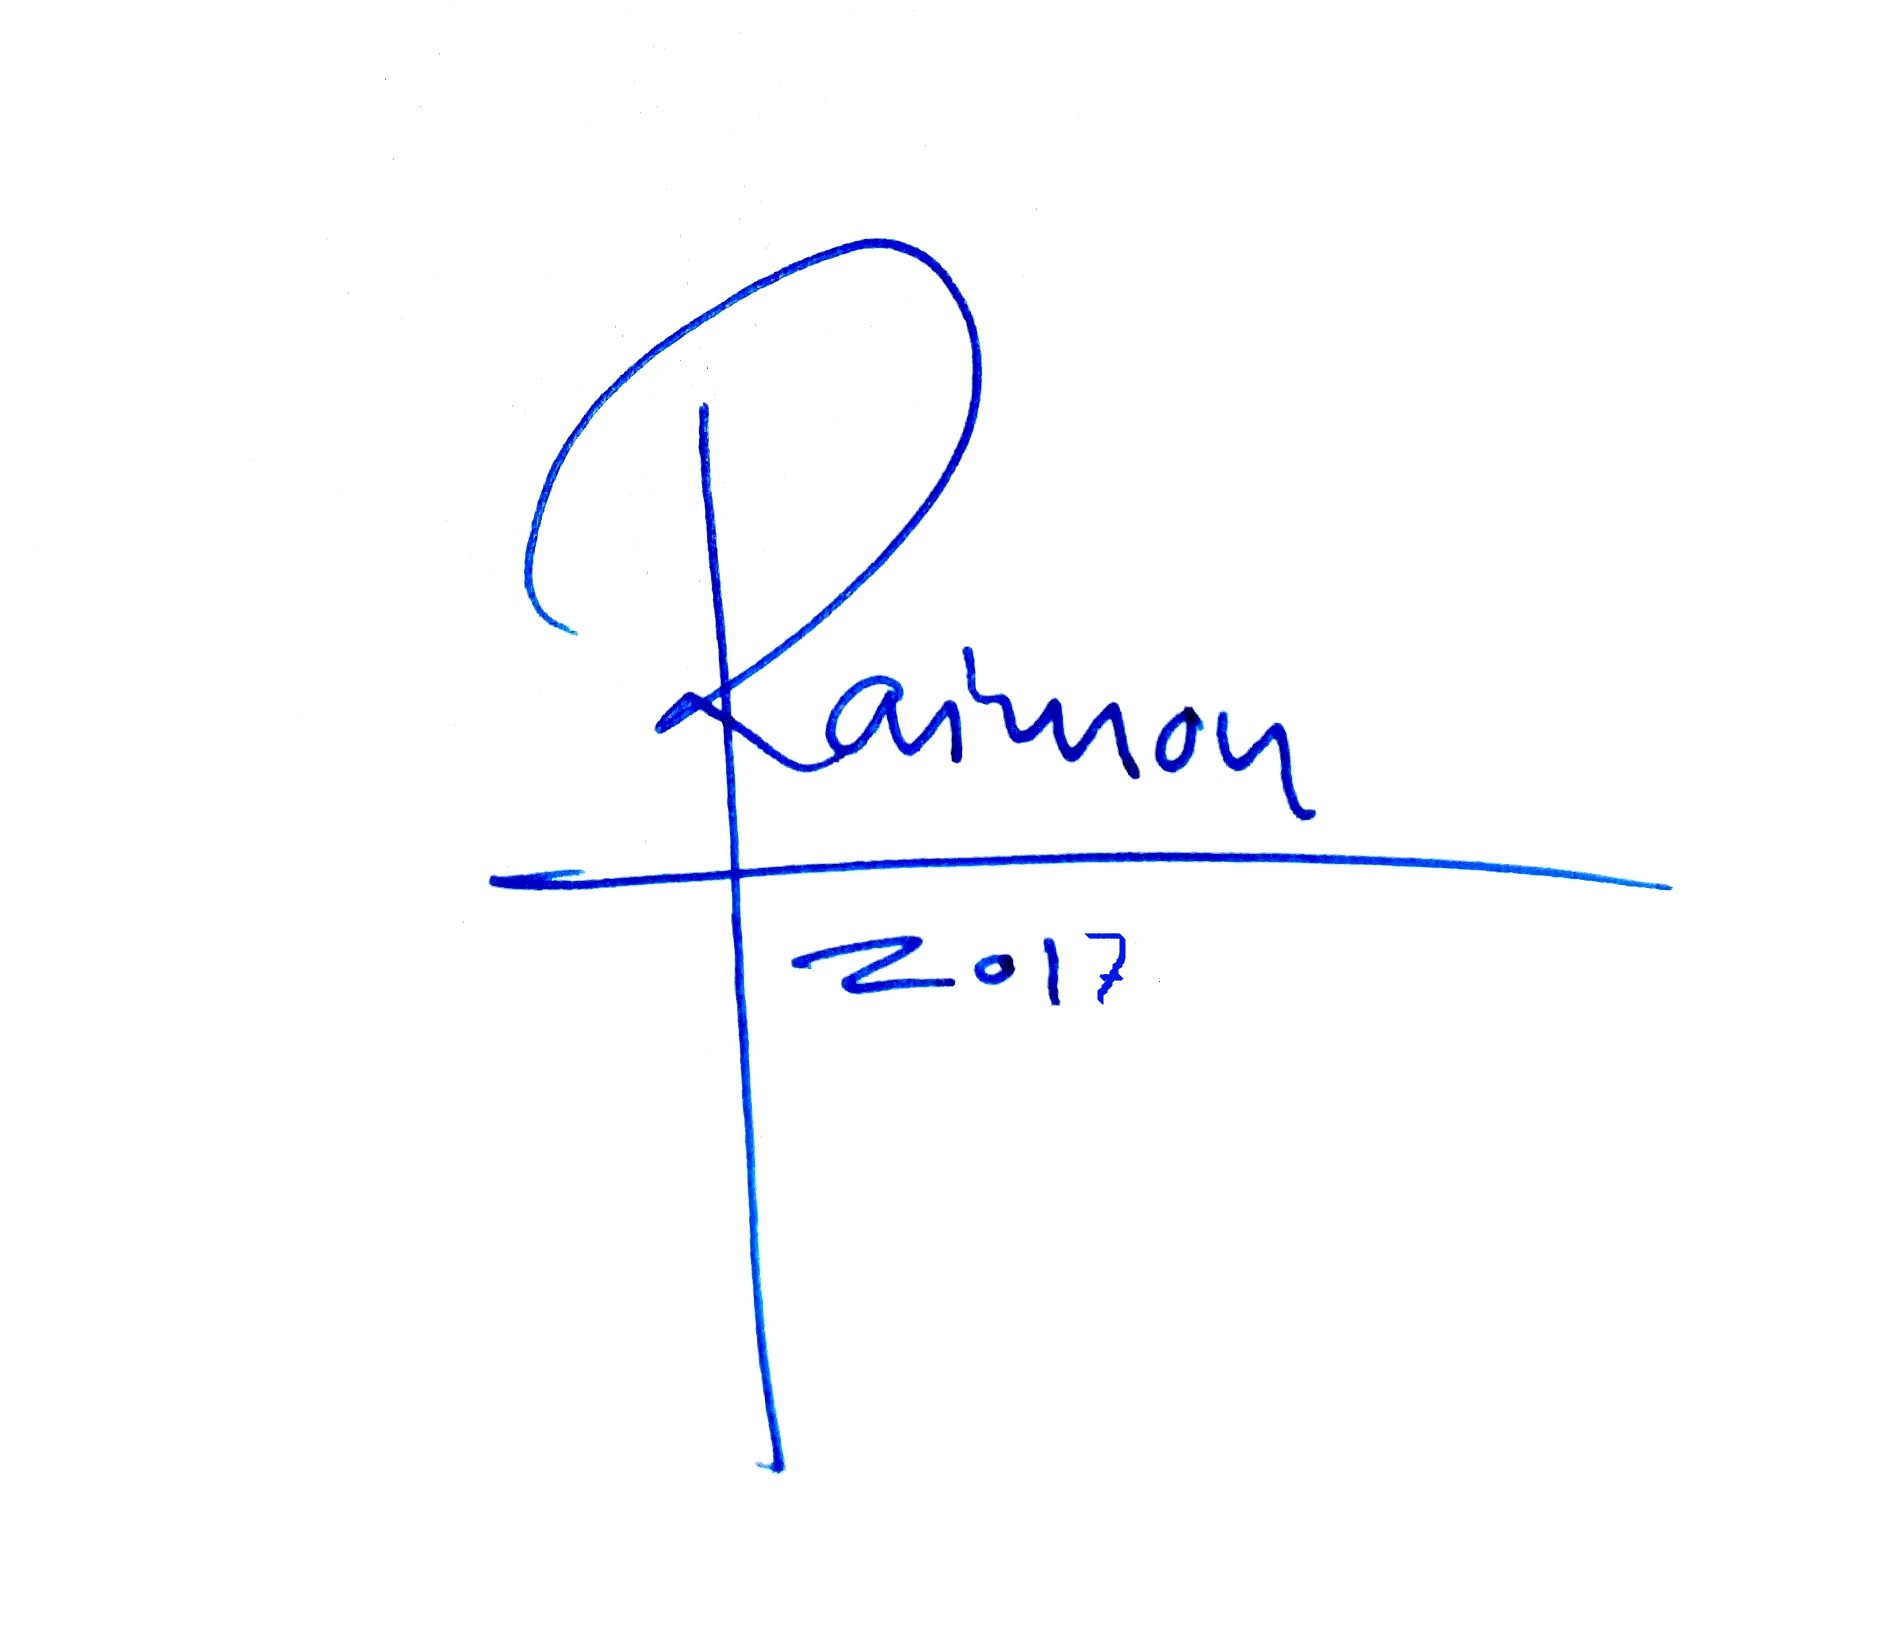 Raimon
2017